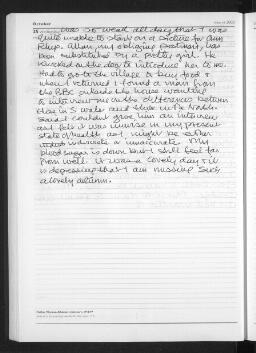 October
was so weak all day that I was
quite unable to start on a picture for Ann
Philip. Allan, my obliging postman, has
been substituted by a pretty girl. He
knocked on the door to introduce her to me.
Had to go to the village to buy food &
when I returned I found a man from
the BBC outside the house wanting
to interview me on the difference between
their in S. Wales and those in the North.
Said I couldn't give him an interview
as I felt it was unwise in my present
state of health as I might be either
indiscrete or inaccurate. My
blood sugar is down but I still feel far
from well. It was a lovely day & it
is depressing that I am missing such
a lovely autumn.